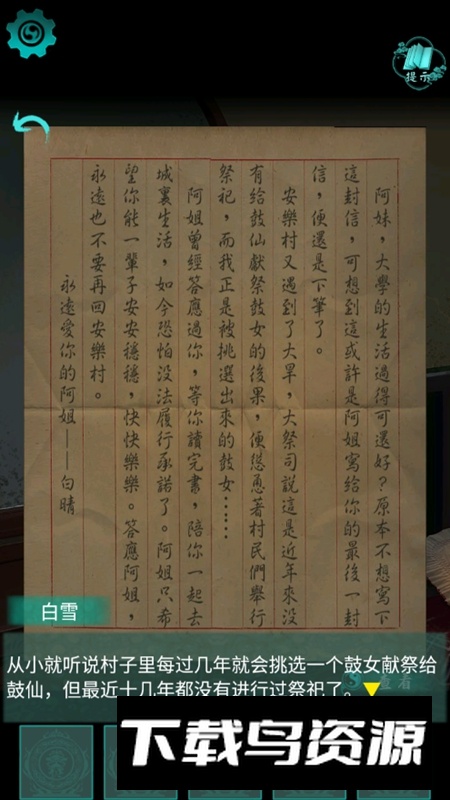 提示
阿妹，大學的生活過得可還好？原本不想寫下
這封信，可想到這或許是阿姐寫給你的最後一封
信，便還是下筆了。
安樂村又遇到了大旱，大祭司說這是近年來沒
有給鼓仙獻祭鼓女的後果，便慫恿著村民們舉行
祭祀，而我正是被挑選出來的鼓女……
阿姐曾經答應過你，等你讀完書，陪你一起去
城裏生活，如今恐怕沒法履行承諾了。阿姐只希
望你能一輩子安安穩穩，快快樂樂。答應阿姐，
永遠也不要再回安樂村。
永遠愛你的阿姐——白晴
白雪
从小就听说村子里每过几年就会挑选一个鼓女献祭给
鼓仙，但最近十几年都没有进行过祭祀了。
查看
下载鸟资源